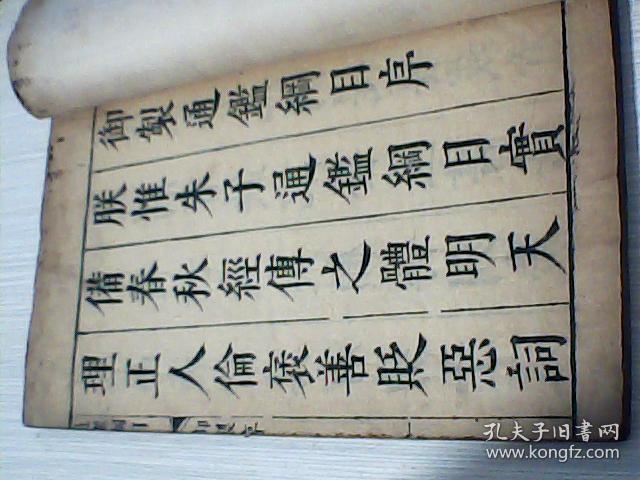 御製通鑑綱目序
朕惟朱子通鑑綱目實
備春秋經傳之體明天
理正人倫褒善貶惡詞
孔夫子旧书网
www.kongfz.com